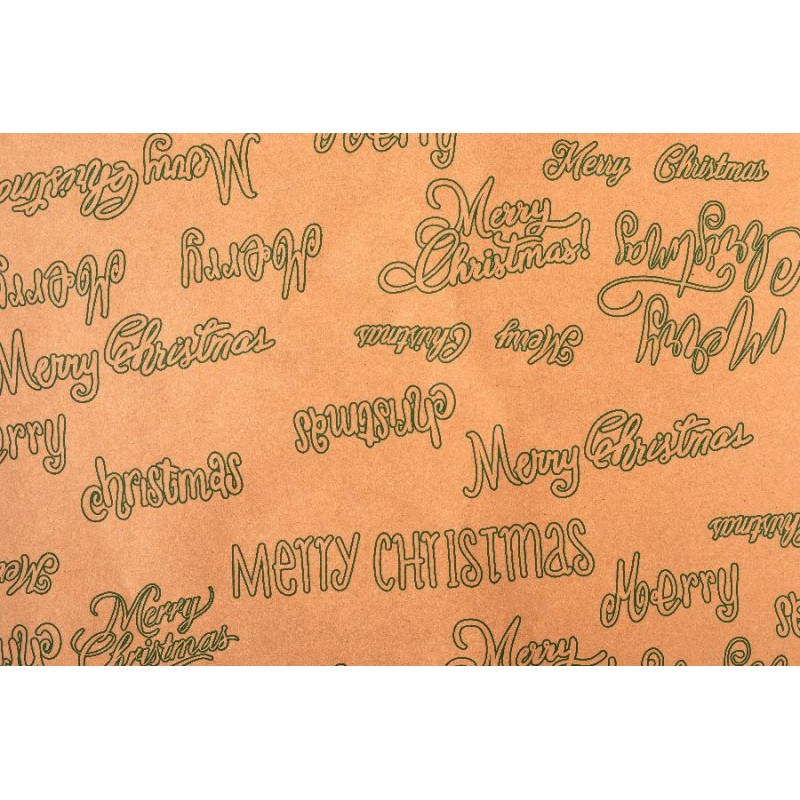 Merry
Merry Christmas
Merry
Christmas
Merry
Christmas!
Merry
Christmas
Merry
Merry
Merry Christmas
Merry
Christmas
Christmas
Merry Christmas
christmas
Merry Christmas
Christmas
Merry
Merry
Merry
Christmas
Merry